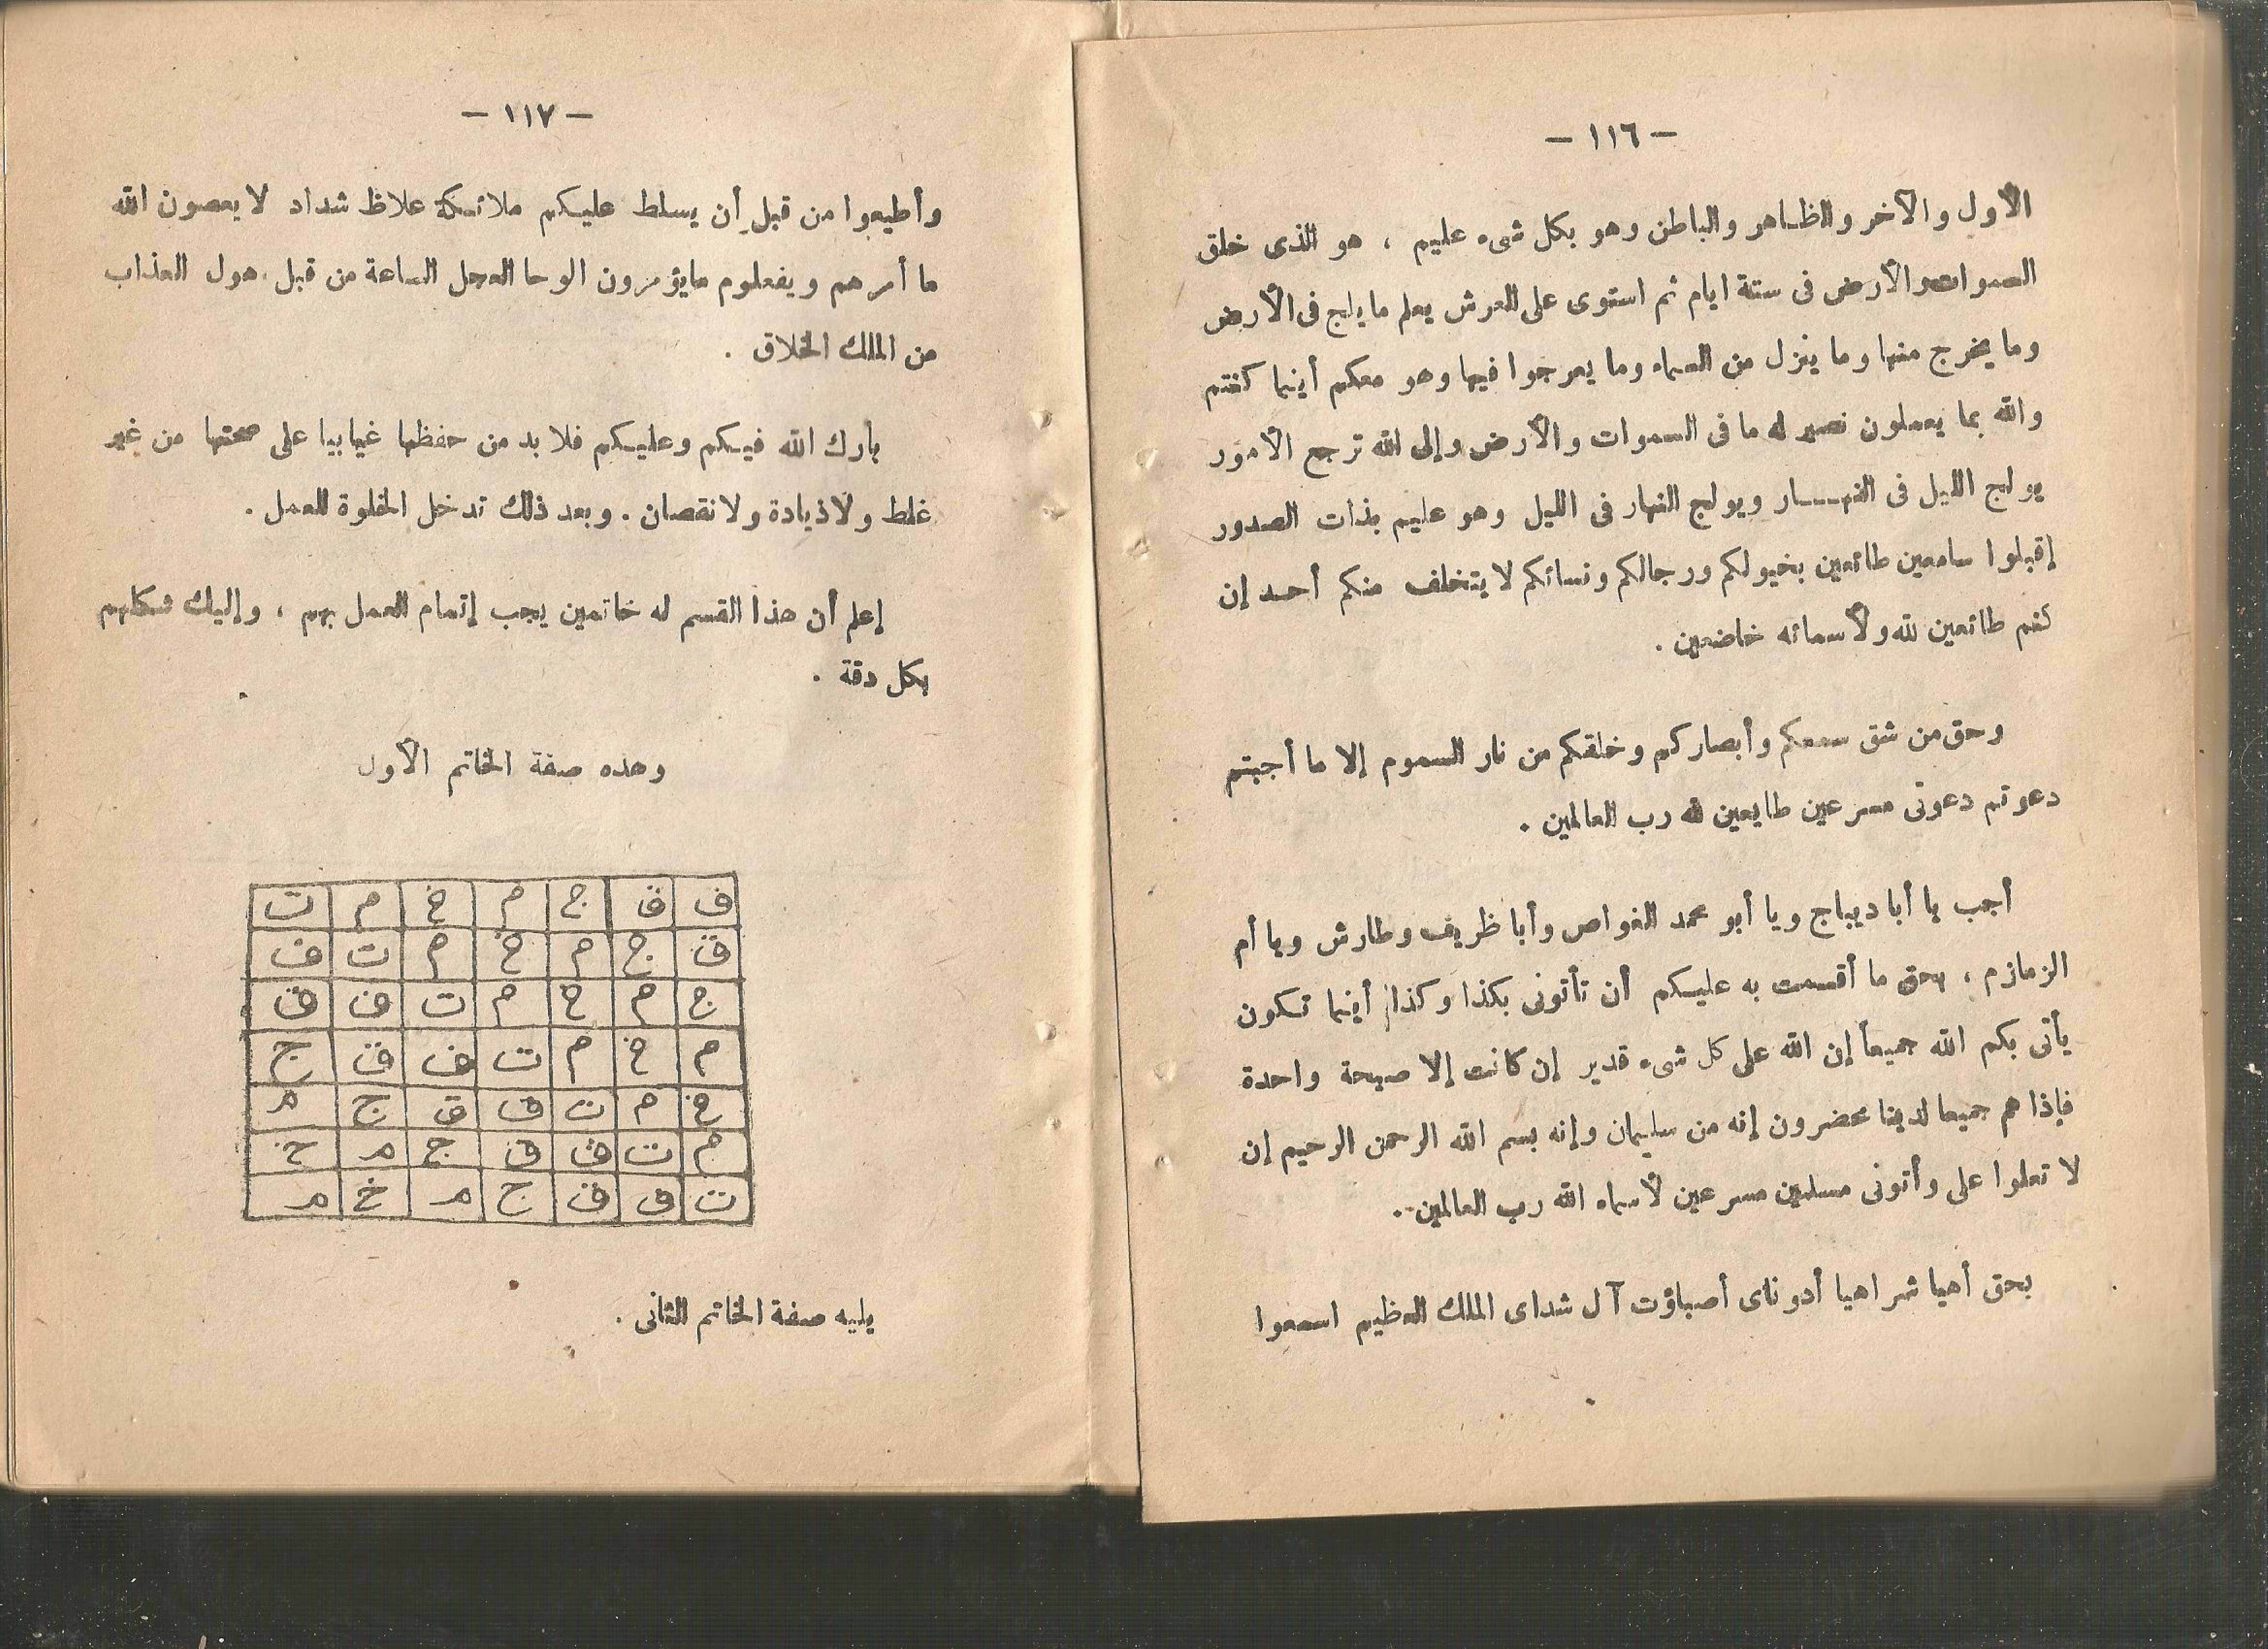 — ١١٦ —
الأول والآخر والظاهر والباطن وهو بكل شىء عليم ، هو الذى خلق
السموات والأرض فى ستة ايام ثم استوى على العرش يعلم ما يلج فى الأرض
وما يخرج منها وما ينزل من السماء وما يعرجوا فيها وهو معكم أينما كنتم
والله بما يعملون نصير له ما فى السموات والأرض وإلى الله ترجع الأمور
يولج الليل فى النهـــار ويولج النهار فى الليل وهو عليم بذات الصدور
إقبلوا سامعين طائعين بخيولكم ورجالكم ونسائكم لا يتخلف منكم أحد إن
كنتم طائعين لله ولأسمائه خاضعين .
وحق من شق سمعكم وأبصاركم وخلقكم من نار السموم إلا ما أجبتم
دعوتم دعوتى مسرعين طايعين لله رب العالمين .
أجب يا أبا ديباج ويا أبو محمد الغواص وأبا ظريف وطارش ويا أم
الزمازم ، بحق ما أقسمت به عليكم أن تأتونى بكذا وكذا أينما تكون
يأتى بكم الله جميعاً إن الله على كل شىء قدير إن كانت إلا صيحة واحدة
فإذا هم جميعا لدينا محضرون إنه من سليمان وإنه بسم الله الرحمن الرحيم إن
لا تعلوا على وأتونى مسلمين مسرعين لأسماء الله رب العالمين .
بحق أهيا شراهيا أدوناى أصباؤت آل شداى الملك العظيم اسمعوا
— ١١٧ —
وأطيعوا من قبل أن يسلط عليكم ملائكة علاظ شداد لا يعصون الله
ما أمرهم ويفعلوم مايؤمرون الوحا العجل الساعة من قبل هول العذاب
من الملك الخلاق .
بارك الله فيكم وعليكم فلا بد من حفظها غيابيا على صحتها من غير
غلط ولاذيادة ولا نقصان . وبعد ذلك تدخل الخلوة للعمل .
إعلم أن هذا القسم له خاتمين يجب إتمام العمل بهم ، وإليك شكلهم
بكل دقة .
وهذه صفة الخاتم الأول
ف ق ج م خ م ت
ق ج م خ م ت ف
ج م خ م ت ف ق
م خ م ت ف ق ج
خ م ت ف ق ج م
م ت ف ق ج م خ
ت ف ق ج م خ م
يليه صفة الخاتم الثانى .